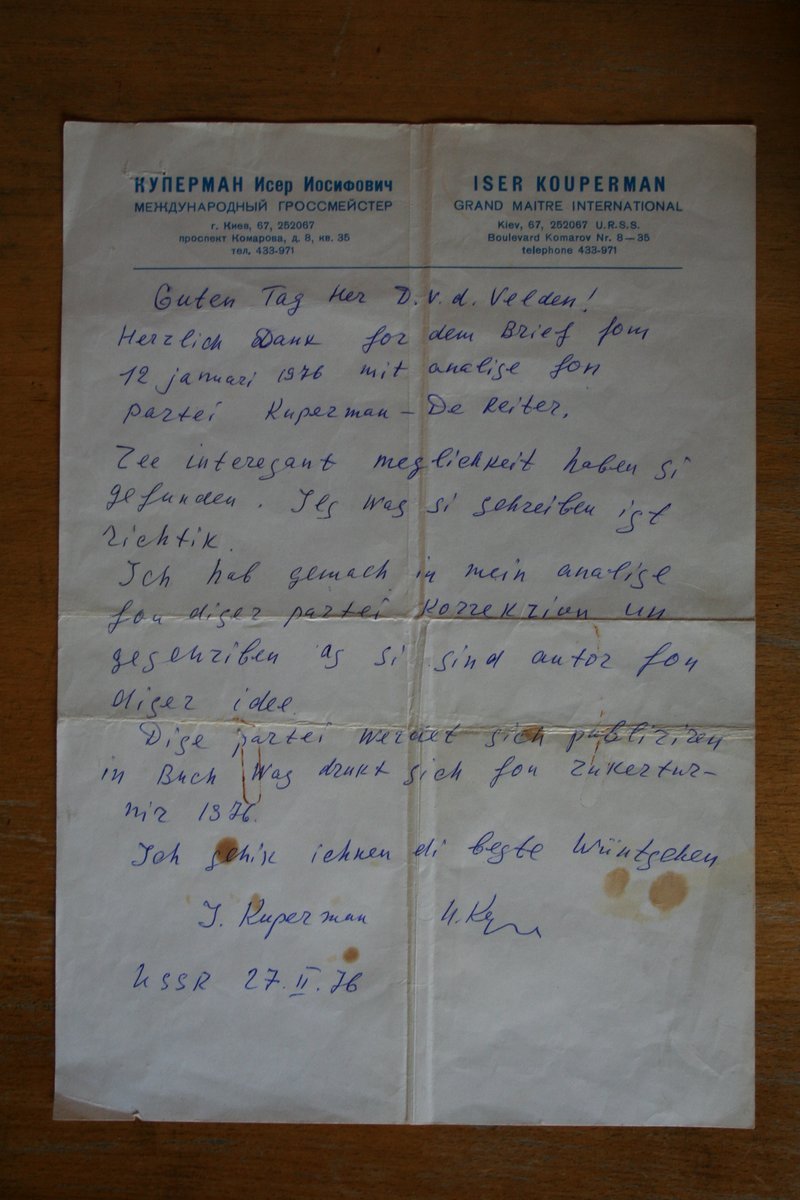 КУПЕРМАН Исер Иосифович
МЕЖДУНАРОДНЫЙ ГРОССМЕЙСТЕР
г. Киев, 67, 252067
проспект Комарова, д. 8, кв. 35
тел. 433-971
ISER KOUPERMAN
GRAND MAITRE INTERNATIONAL
Kiev, 67, 252067 U.R.S.S.
Boulevard Komarov Nr. 8—35
telephone 433-971
Guten Tag Her D.v.d. Velden!
Herzlich Dank for dem Brief fom
12 januari 1976 mit analise fon
partei Kuperman – De Reiter.
Zee interesant meglichkeit haben si
gefunden. Jls was si schreiben ist
richtik.
Ich hab gemach in mein analise
fon diser partei korrekzion un
geschriben as si sind autor fon
diser idee.
Dise partei werdet sich publiziren
in Buch was drukt sich fon zukertur-
nir 1976.
Ich schik ichnen di beste Wüntschen
I. Kuperman И. Ку
USSR 27.II.76